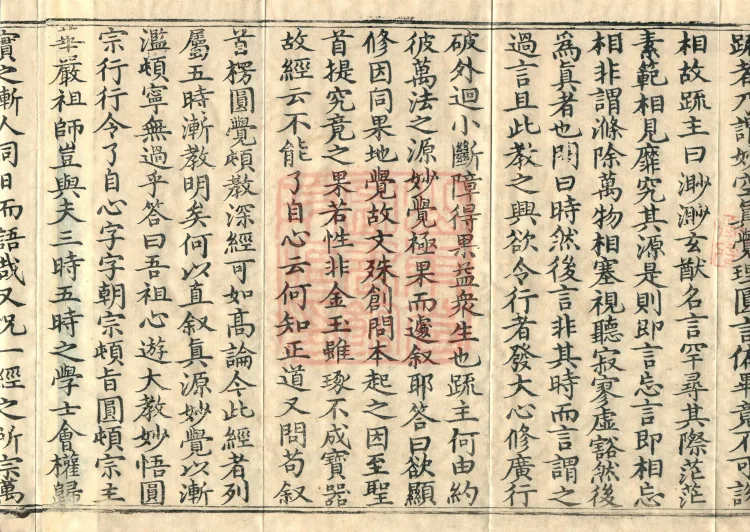 相故疏主曰渺渺玄猷名言罕尋其際茫茫
素範相見靡究其源是則即言忘言即相忘
相非謂滌除萬物相塞視聽寂寥虛豁然後
為真者也問曰時然後言非其時而言謂之
過言且此教之興欲令行者發大心修廣行
破外迴小斷障得果益衆生也疏主何由約
彼萬法之源妙覺極果而邊叙耶答曰欲顯
修因同果地覺故文殊創問本起之因至聖
首提究竟之果若性非金玉雖琢不成寶器
故經云不能了自心云何知正道又問苟叙
首楞圓覺頓教深經可如高論令此經者列
屬五時漸教明矣何以直叙真源妙覺以漸
濫頓寧無過乎答曰吾祖心遊大教妙悟圓
宗行行令了自心字字朝宗頓旨圓頓宗主
華嚴祖師豈與夫三時五時之學士會權歸
實之漸人同日而語哉又況一經之所宗萬